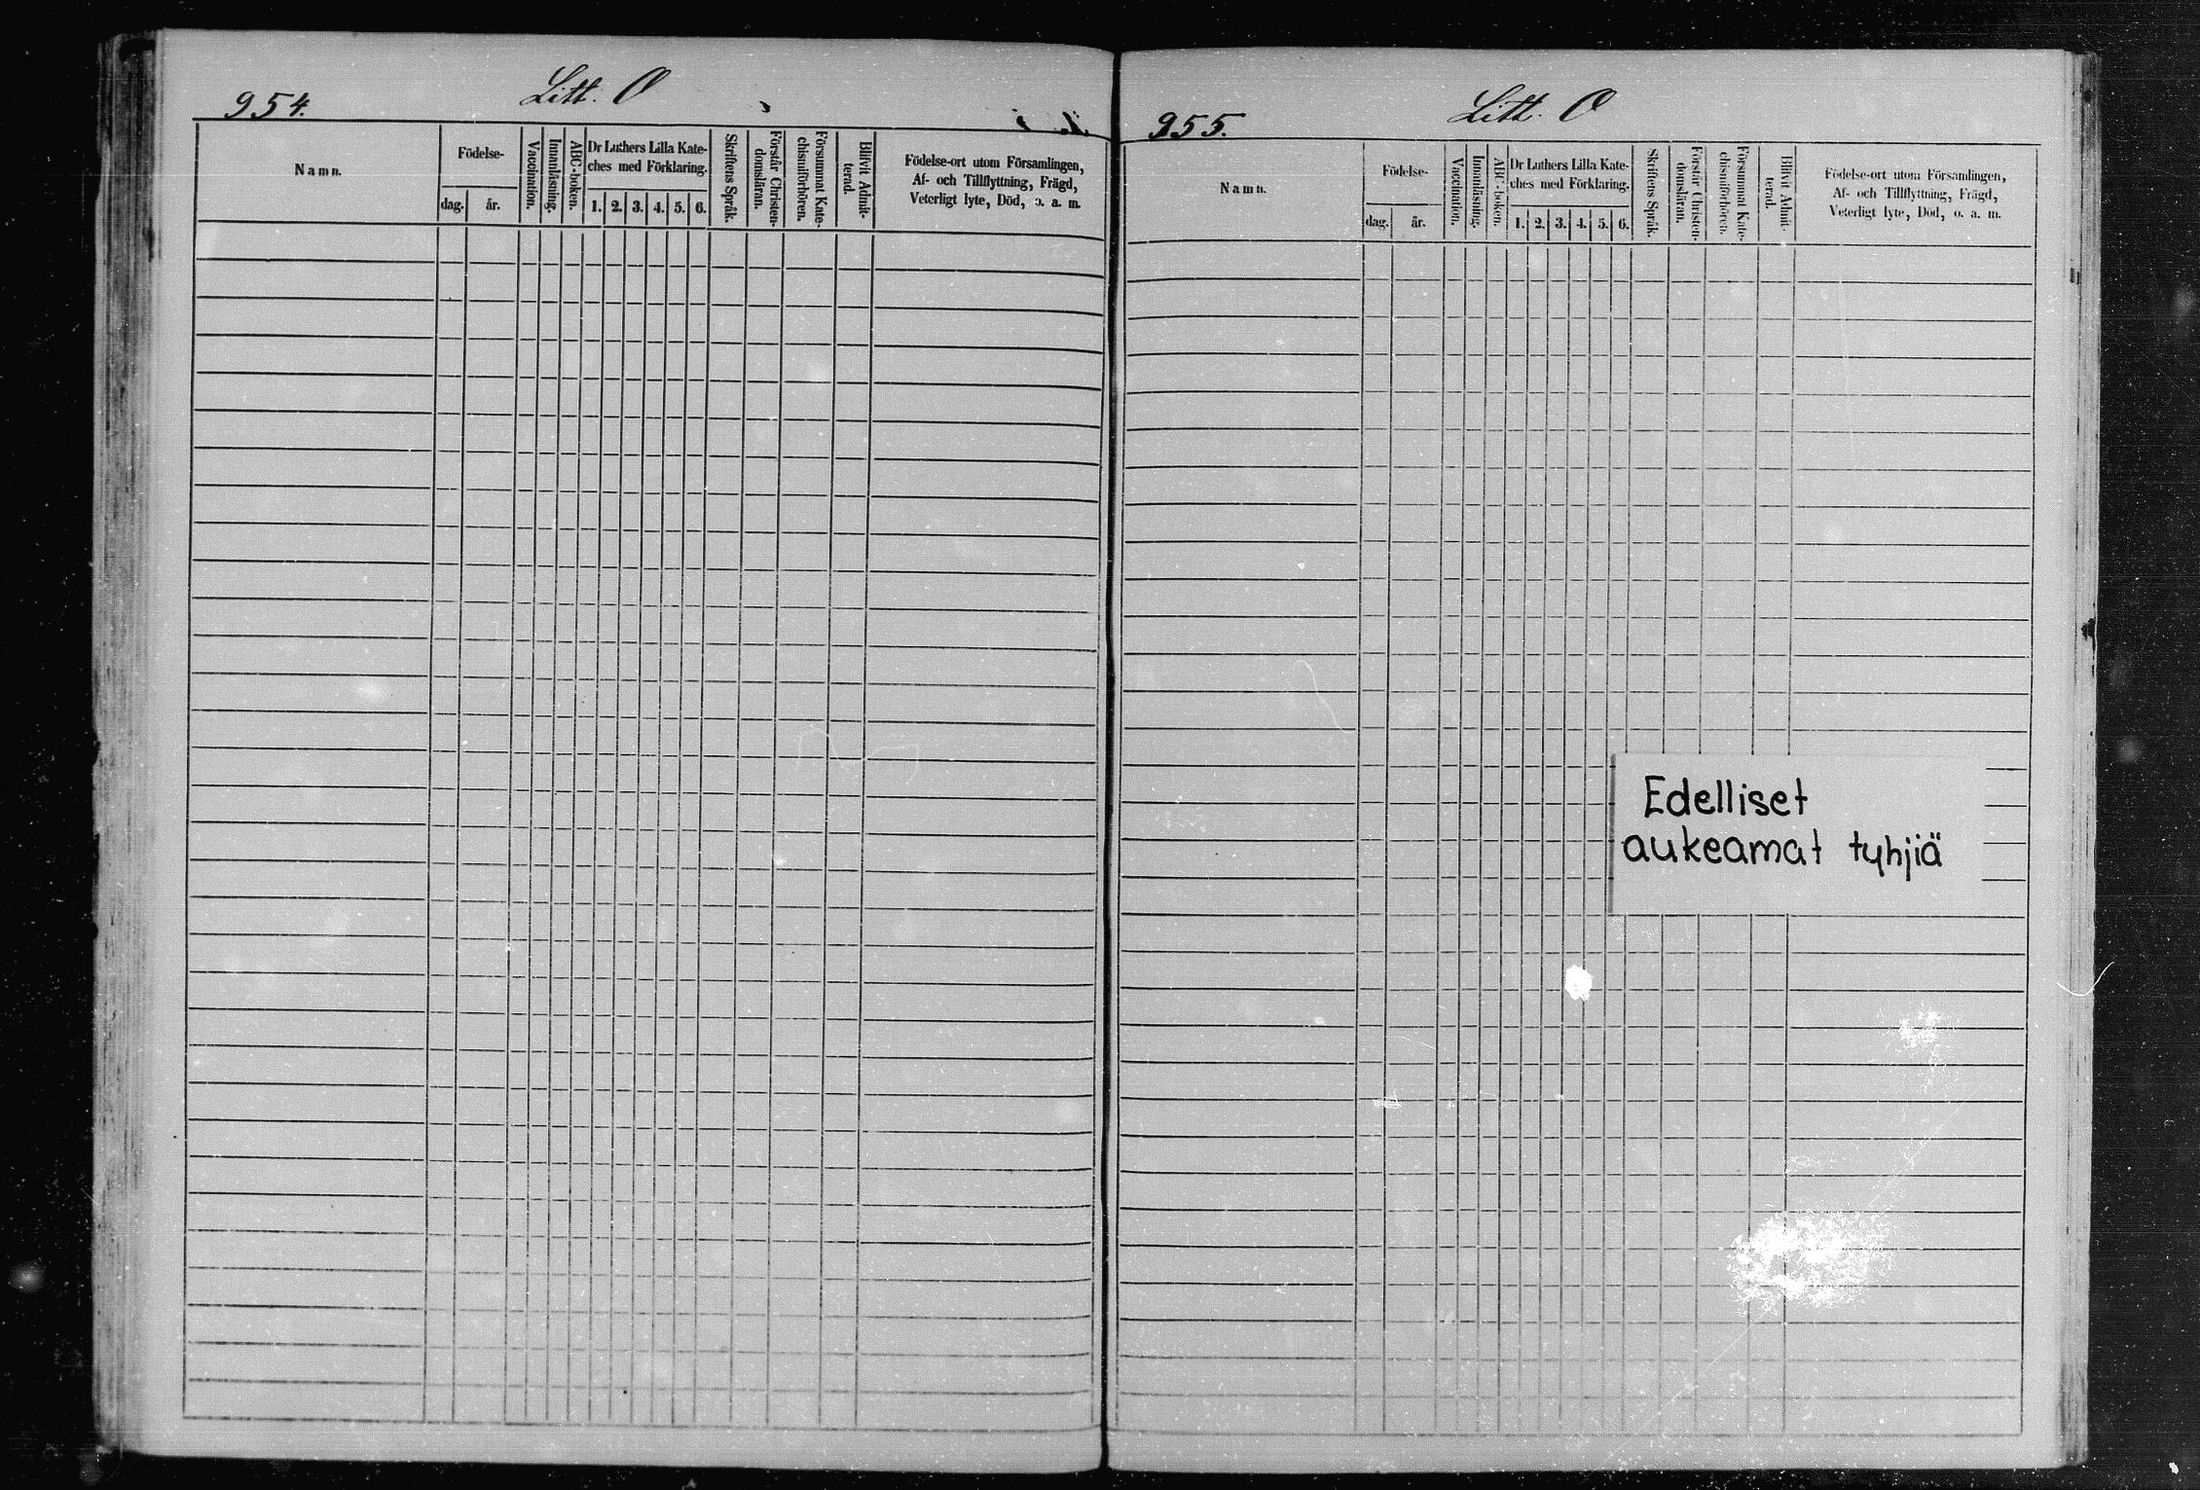 954.
Litt. O
Namn.
Födelse-
dag.
år.
Vaccination.
Innanläsning.
ABC-boken.
Dr Luthers Lilla Kate-
ches med Förklaring.
1. 2. 3. 4. 5. 6.
Skriftens Språk.
Förstår Christen-
domsläran.
Försummat Kate-
chismiförhören.
Blifvit Admit-
terad.
Födelse-ort utom Församlingen,
Af- och Tillflyttning, Frägd,
Veterligt lyte, Död, o. a. m.
955.
Litt. O
Namn.
Födelse-
dag.
år.
Vaccination.
Innanläsning.
ABC-boken.
Dr Luthers Lilla Kate-
ches med Förklaring.
1. 2. 3. 4. 5. 6.
Skriftens Språk.
Förstår Christen-
domsläran.
Försummat Kate-
chismiförhören.
Blifvit Admit-
terad.
Födelse-ort utom Församlingen,
Af- och Tillflyttning, Frägd,
Veterligt lyte, Död, o. a. m.
Edelliset
aukeamat tyhjiä